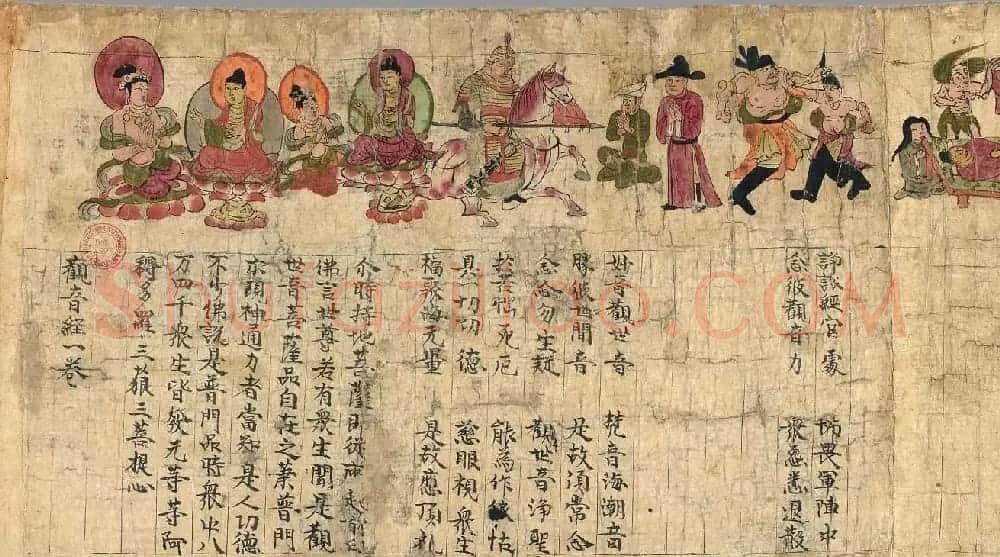 諍訟經官處　怖畏軍陣中
念彼觀音力　衆怨悉退散
妙音觀世音　梵音海潮音
勝彼世間音　是故須常念
念念勿生疑　觀世音淨聖
於苦惱死厄　能為作依怙
具一切功德　慈眼視衆生
福聚海无量　是故應頂礼
尒時持地菩薩即從座起前白
佛言世尊若有衆生聞是觀
世音菩薩品自在之業普門
示現神通力者當知是人功德
不少佛說是普門品時衆中八
万四千衆生皆發无等等阿
耨多羅三藐三菩提心
觀音經一卷
Shufaziliao.COM